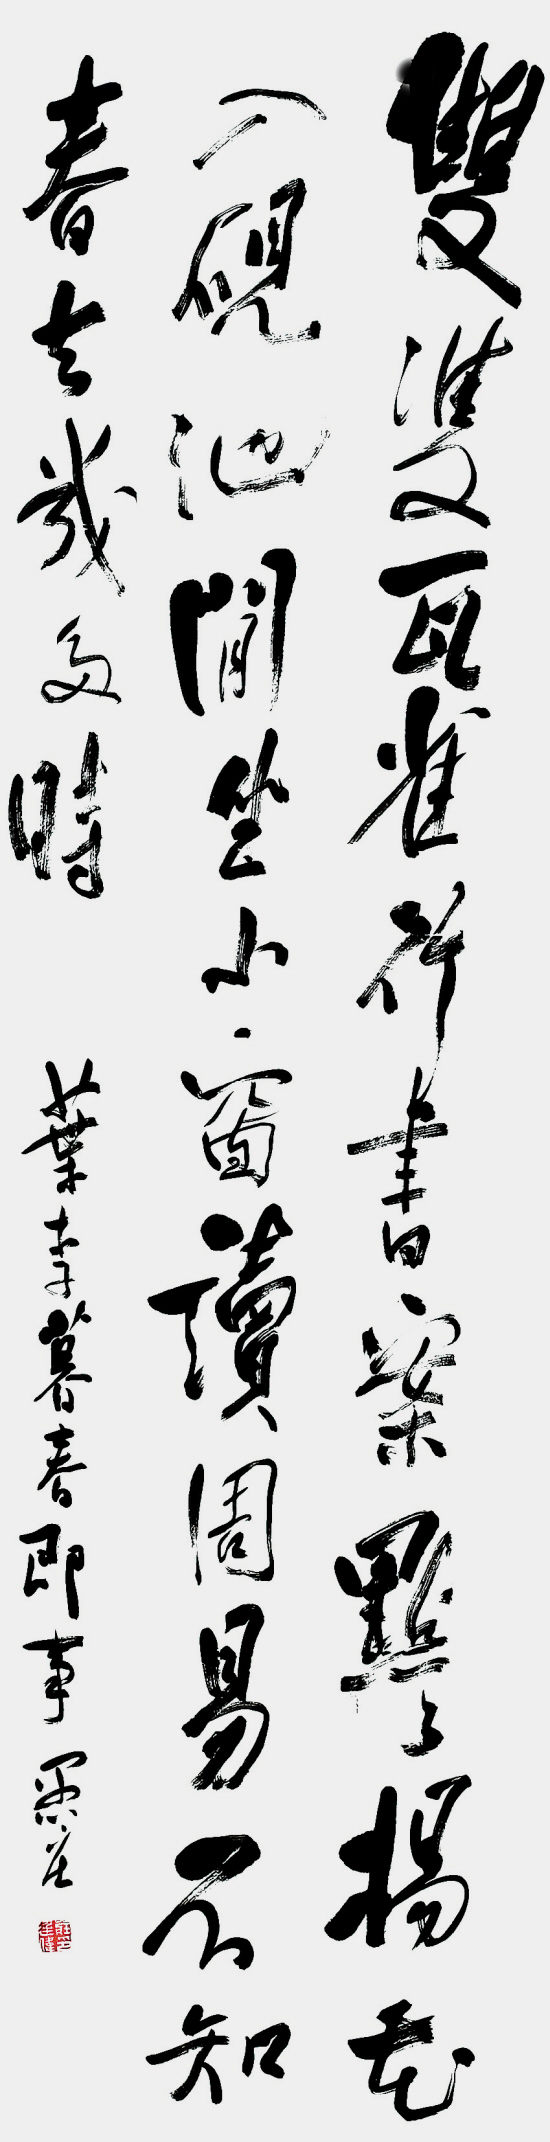 雙雙瓦雀行書案點々楊花
入硯池閒坐小窗讀周易不知
春去幾多時
葉李暮春即事